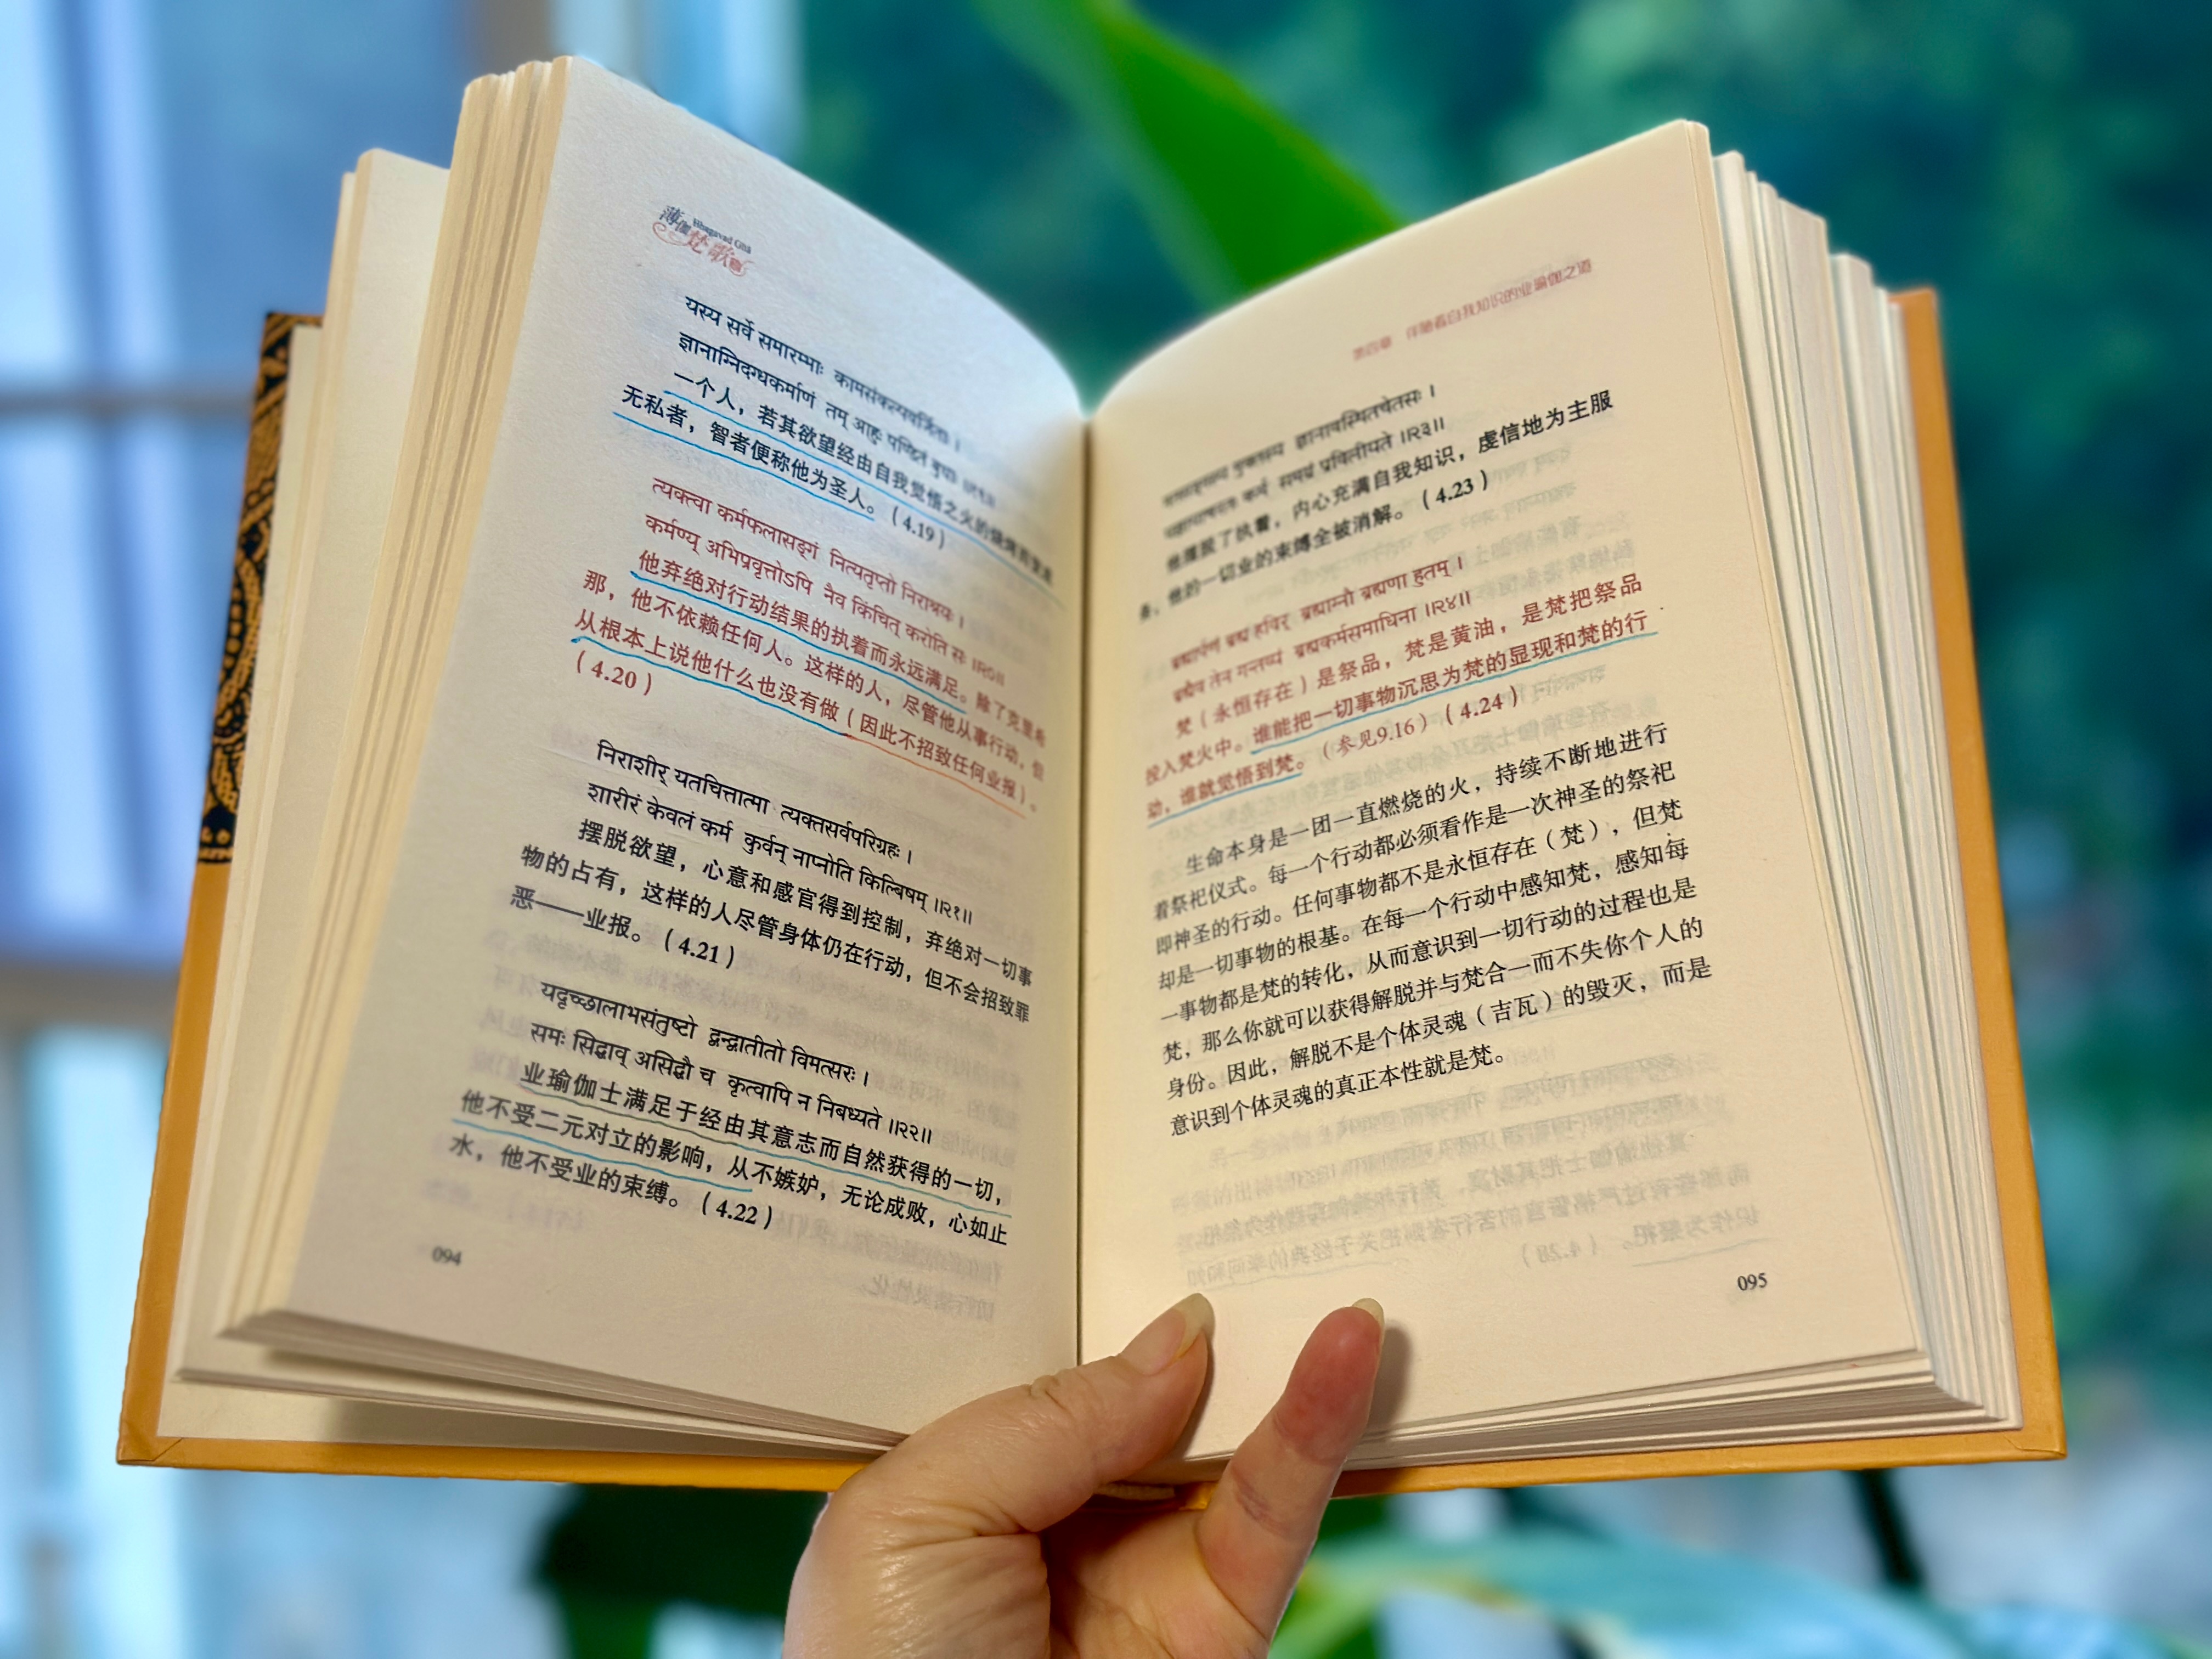 薄伽梵歌
Bhagavad Gītā
यस्य सर्वे समारम्भाः कामसंकल्पवर्जिताः ।
ज्ञानाग्निदग्धकर्माणं तम् आहुः पण्डितं बुधाः ॥१९॥
一个人，若其欲望经由自我觉悟之火的烧烤而变成
无私者，智者便称他为圣人。（4.19）
त्यक्त्वा कर्मफलासङ्गं नित्यतृप्तो निराश्रयः ।
कर्मण्य् अभिप्रवृत्तोऽपि नैव किंचित् करोति सः ॥२०॥
他弃绝对行动结果的执着而永远满足。除了克里希
那，他不依赖任何人。这样的人，尽管他从事行动，但
从根本上说他什么也没有做（因此不招致任何业报）。
（4.20）
निराशीर् यतचित्तात्मा त्यक्तसर्वपरिग्रहः ।
शारीरं केवलं कर्म कुर्वन् नाप्नोति किल्बिषम् ॥२१॥
摆脱欲望，心意和感官得到控制，弃绝对一切事
物的占有，这样的人尽管身体仍在行动，但不会招致罪
恶——业报。（4.21）
यदृच्छालाभसंतुष्टो द्वन्द्वातीतो विमत्सरः ।
समः सिद्धाव् असिद्धौ च कृत्वापि न निबध्यते ॥२२॥
业瑜伽士满足于经由其意志而自然获得的一切，
他不受二元对立的影响，从不嫉妒，无论成败，心如止
水，他不受业的束缚。（4.22）
094
第四章 伴随着自我知识的业瑜伽之道
मुक्तस्य ज्ञानावस्थितचेतसः ।
कर्म समग्रं प्रविलीयते ॥२३॥
他摆脱了执着，内心充满自我知识，虔信地为主服
务，他的一切业的束缚全被消解。（4.23）
ब्रह्मार्पणं ब्रह्म हविर् ब्रह्माग्नौ ब्रह्मणा हुतम् ।
ब्रह्मैव तेन गन्तव्यं ब्रह्मकर्मसमाधिना ॥२४॥
梵（永恒存在）是祭品，梵是黄油，是梵把祭品
投入梵火中。谁能把一切事物沉思为梵的显现和梵的行
动，谁就觉悟到梵。（参见9.16）（4.24）
生命本身是一团一直燃烧的火，持续不断地进行
着祭祀仪式。每一个行动都必须看作是一次神圣的祭祀
即神圣的行动。任何事物都不是永恒存在（梵），但梵
却是一切事物的根基。在每一个行动中感知梵，感知每
一事物都是梵的转化，从而意识到一切行动的过程也是
梵，那么你就可以获得解脱并与梵合一而不失你个人的
身份。因此，解脱不是个体灵魂（吉瓦）的毁灭，而是
意识到个体灵魂的真正本性就是梵。
095